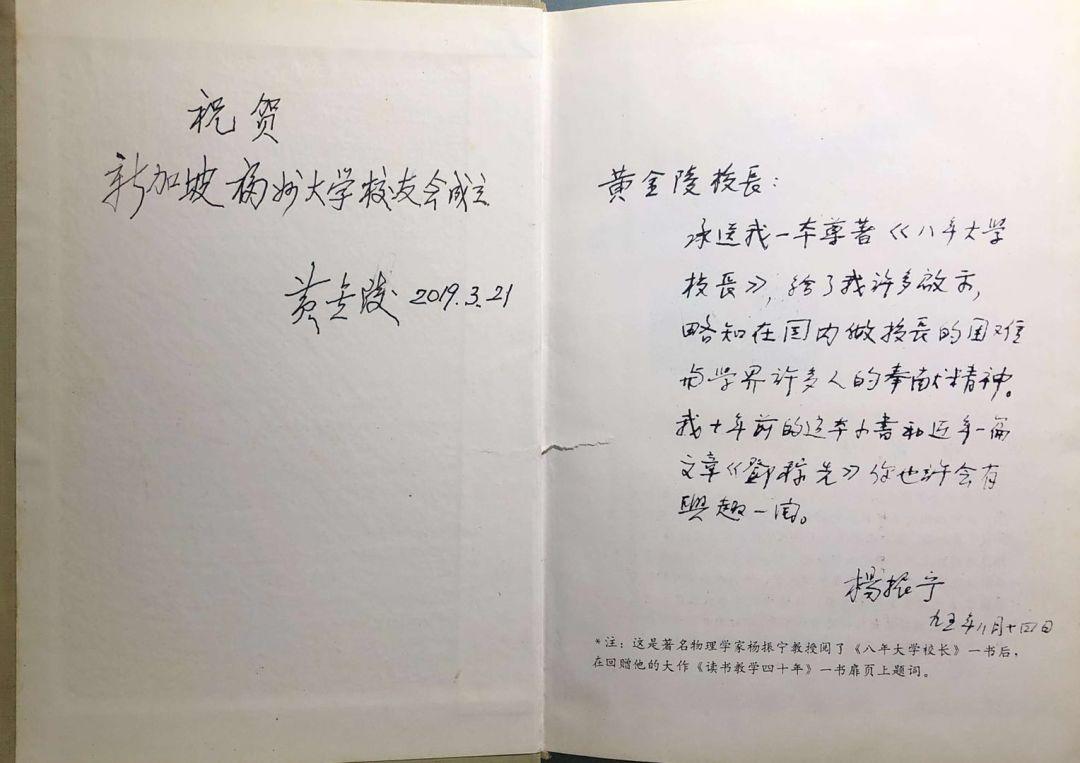 祝贺
新加坡福州大学校友会成立
黄金陵 2019.3.21
黄金陵校長：
承送我一本尊著《八年大学
校長》，给了我许多啟示，
略知在国内做校長的困难
与学界许多人的奉献精神。
我十年前的这本小書和近年一篇
文章《鄧稼先》你也许会有
興趣一阅。
楊振宁
九五年八月十四日
*注：这是著名物理学家杨振宁教授阅了《八年大学校长》一书后，
在回赠他的大作《读书教学四十年》一书扉页上题词。